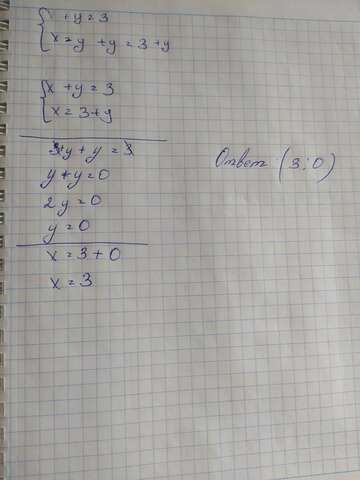 +y=3
x=y +y=3+y
x+y=3
x=3+y
3+y+y=3
y+y=0
2y=0
y=0
x=3+0
x=3
Ответ (3;0)